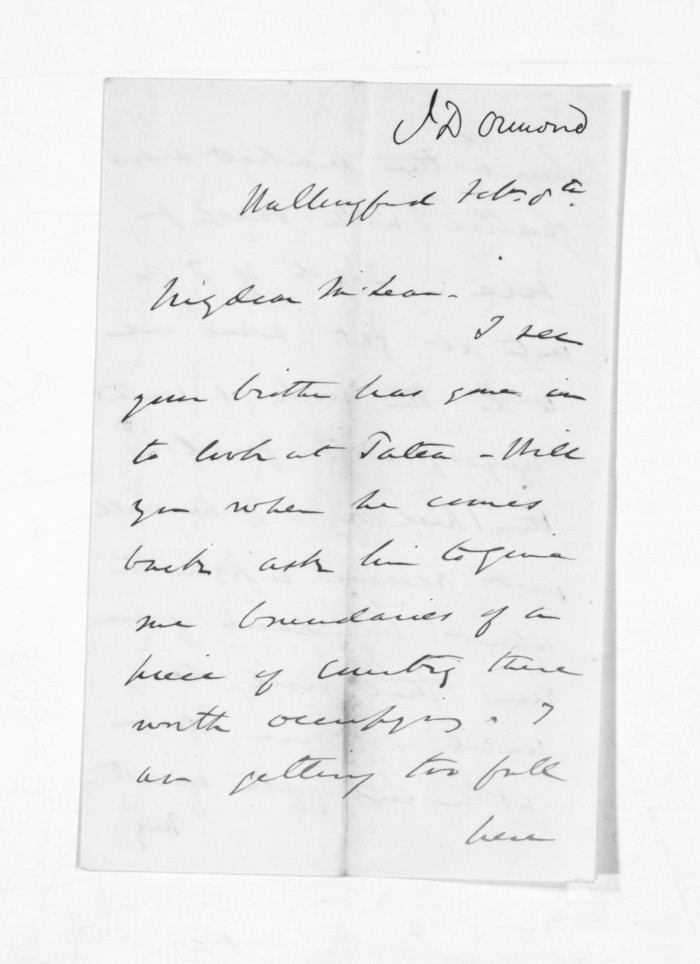 J D Ormond
Wallingford Feb. 8th.
My dear McLean -
I see
your brother has gone in
to look at Tatea - Will
you when he comes
back ask him to give
me boundaries of a
piece of country there
worth occupying. I
am getting too full
here